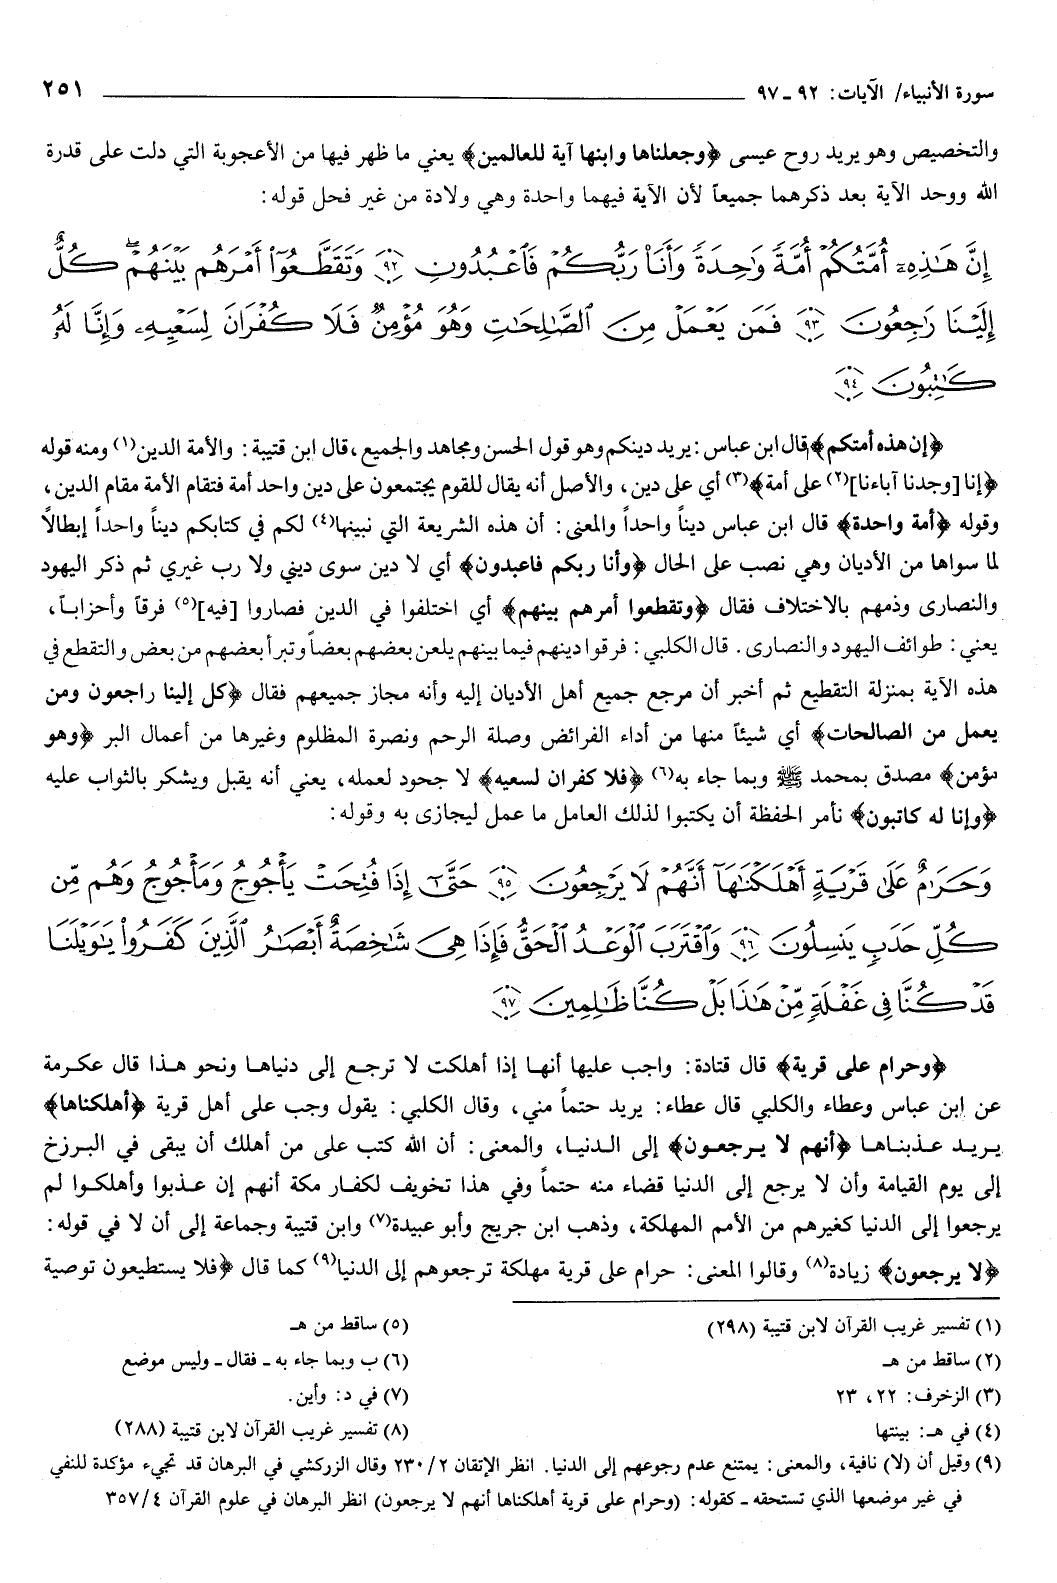 سورة الأنبياء/ الآيات: ٩٢ ـ ٩٧ ٢٥١
والتخصيص وهو يريد روح عيسى ﴿وجعلناها وابنها آية للعالمين﴾ يعني ما ظهر فيها من الأعجوبة التي دلت على قدرة
الله ووحد الآية بعد ذكرهما جميعاً لأن الآية فيهما واحدة وهي ولادة من غير فحل قوله:
إِنَّ هَٰذِهِۦٓ أُمَّتُكُمْ أُمَّةً وَٰحِدَةً وَأَنَا۠ رَبُّكُمْ فَٱعْبُدُونِ ٩٢ وَتَقَطَّعُوٓا۟ أَمْرَهُم بَيْنَهُمْ ۖ كُلٌّ
إِلَيْنَا رَٰجِعُونَ ٩٣ فَمَن يَعْمَلْ مِنَ ٱلصَّٰلِحَٰتِ وَهُوَ مُؤْمِنٌ فَلَا كُفْرَانَ لِسَعْيِهِۦ وَإِنَّا لَهُۥ
كَٰتِبُونَ ٩٤
﴿إن هذه أمتكم﴾ قال ابن عباس: يريد دينكم وهو قول الحسن ومجاهد والجميع، قال ابن قتيبة: والأمة الدين(١) ومنه قوله
﴿إنا [وجدنا آباءنا](٢) على أمة﴾(٣) أي على دين، والأصل أنه يقال للقوم يجتمعون على دين واحد أمة فتقام الأمة مقام الدين،
وقوله ﴿أمة واحدة﴾ قال ابن عباس ديناً واحداً والمعنى: أن هذه الشريعة التي نبينها(٤) لكم في كتابكم ديناً واحداً إبطالاً
لما سواها من الأديان وهي نصب على الحال ﴿وأنا ربكم فاعبدون﴾ أي لا دين سوى ديني ولا رب غيري ثم ذكر اليهود
والنصارى وذمهم بالاختلاف فقال ﴿وتقطعوا أمرهم بينهم﴾ أي اختلفوا في الدين فصاروا [فيه](٥) فرقاً وأحزاباً،
يعني: طوائف اليهود والنصارى. قال الكلبي: فرقوا دينهم فيما بينهم يلعن بعضهم بعضاً وتبرأ بعضهم من بعض والتقطع في
هذه الآية بمنزلة التقطيع ثم أخبر أن مرجع جميع أهل الأديان إليه وأنه مجاز جميعهم فقال ﴿كل إلينا راجعون ومن
يعمل من الصالحات﴾ أي شيئاً منها من أداء الفرائض وصلة الرحم ونصرة المظلوم وغيرها من أعمال البر ﴿وهو
مؤمن﴾ مصدق بمحمد ﷺ وبما جاء به(٦) ﴿فلا كفران لسعيه﴾ لا جحود لعمله، يعني أنه يقبل ويشكر بالثواب عليه
﴿وإنا له كاتبون﴾ نأمر الحفظة أن يكتبوا لذلك العامل ما عمل ليجازى به وقوله:
وَحَرَٰمٌ عَلَىٰ قَرْيَةٍ أَهْلَكْنَٰهَآ أَنَّهُمْ لَا يَرْجِعُونَ ٩٥ حَتَّىٰٓ إِذَا فُتِحَتْ يَأْجُوجُ وَمَأْجُوجُ وَهُم مِّن
كُلِّ حَدَبٍ يَنسِلُونَ ٩٦ وَٱقْتَرَبَ ٱلْوَعْدُ ٱلْحَقُّ فَإِذَا هِىَ شَٰخِصَةٌ أَبْصَٰرُ ٱلَّذِينَ كَفَرُوا۟ يَٰوَيْلَنَا
قَدْ كُنَّا فِى غَفْلَةٍ مِّنْ هَٰذَا بَلْ كُنَّا ظَٰلِمِينَ ٩٧
﴿وحرام على قرية﴾ قال قتادة: واجب عليها أنها إذا أهلكت لا ترجع إلى دنياها ونحو هذا قال عكرمة
عن ابن عباس وعطاء والكلبي قال عطاء: يريد حتماً مني، وقال الكلبي: يقول وجب على أهل قرية ﴿أهلكناها﴾
يريد عذبناها ﴿أنهم لا يرجعون﴾ إلى الدنيا، والمعنى: أن الله كتب على من أهلك أن يبقى في البرزخ
إلى يوم القيامة وأن لا يرجع إلى الدنيا قضاء منه حتماً وفي هذا تخويف لكفار مكة أنهم إن عذبوا وأهلكوا لم
يرجعوا إلى الدنيا كغيرهم من الأمم المهلكة، وذهب ابن جريج وأبو عبيدة(٧) وابن قتيبة وجماعة إلى أن لا في قوله:
﴿لا يرجعون﴾ زيادة(٨) وقالوا المعنى: حرام على قرية مهلكة ترجعوهم إلى الدنيا(٩) كما قال ﴿فلا يستطيعون توصية
(١) تفسير غريب القرآن لابن قتيبة (٢٩٨)
(٢) ساقط من هـ
(٣) الزخرف: ٢٢، ٢٣
(٤) في هـ: بينتها
(٥) ساقط من هـ
(٦) ب وبما جاء به ـ فقال ـ وليس موضع
(٧) في د: وأين.
(٨) تفسير غريب القرآن لابن قتيبة (٢٨٨)
(٩) وقيل أن (لا) نافية، والمعنى: يمتنع عدم رجوعهم إلى الدنيا. انظر الإتقان ٢/٢٣٠ وقال الزركشي في البرهان قد تجيء مؤكدة للنفي
في غير موضعها الذي تستحقه ـ كقوله: (وحرام على قرية أهلكناها أنهم لا يرجعون) انظر البرهان في علوم القرآن ٤/٣٥٧